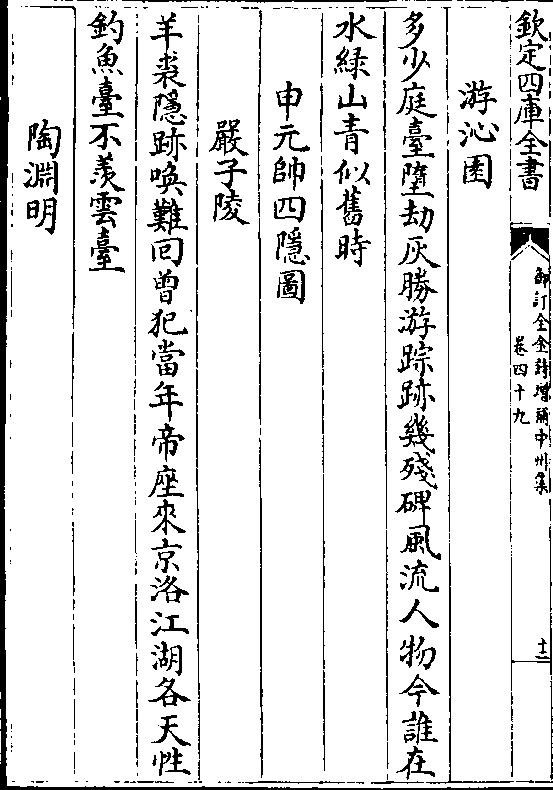 欽定四庫全書
御訂全金詩增補中州集
卷四十九
十二
游沁園
多少庭臺墮劫灰勝游踪跡幾殘碑風流人物今誰在
水綠山青似舊時
申元帥四隱圖
嚴子陵
羊裘隱跡喚難回曾犯當年帝座來京洛江湖各天性
釣魚臺不羨雲臺
陶淵明